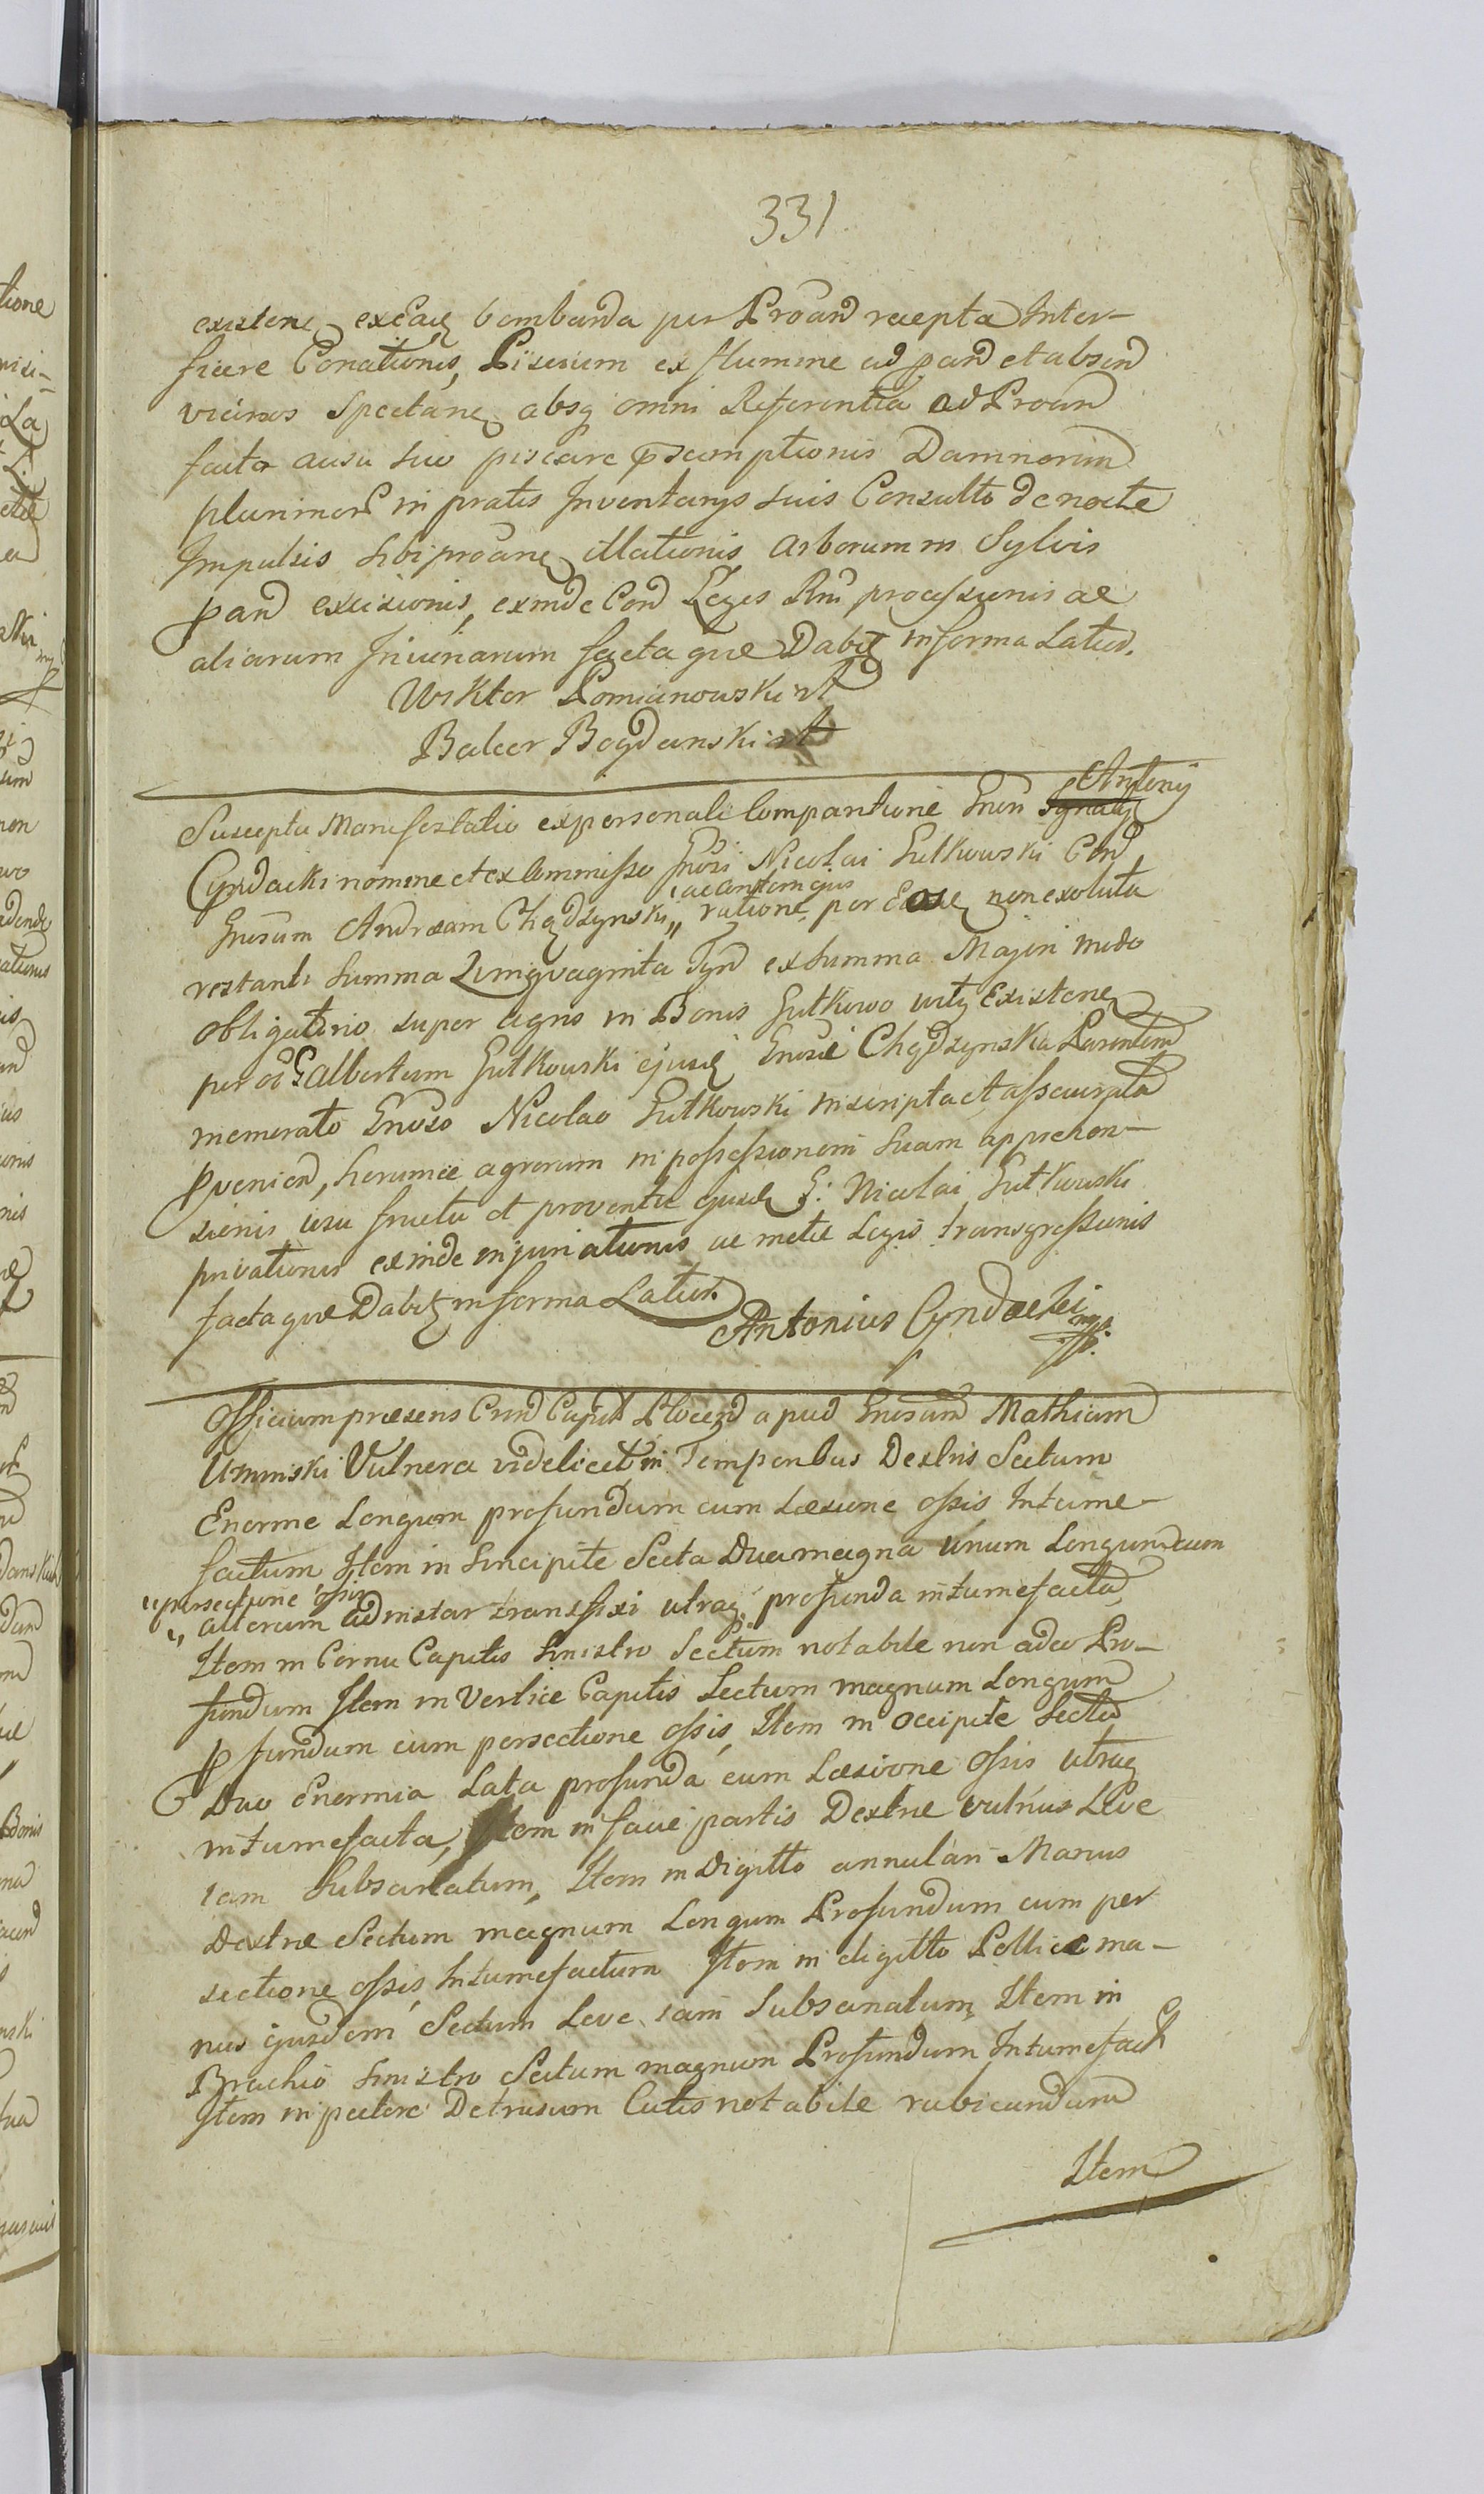 331.
existen excae bombarda per Proand recepta Inter-
ficere Conationis, Piscium ex flumine ad pand et absend
vicinos Spectane absq omni Referentia ad Proand
facta ausu suo piscare Prsumptionis Damnorum
plurimor in pratis Inventarys suis Consulto de nocte
Impulsis sibi proane illationis Arborum in Sylvis
pand excisionis, exinde Cond Leges Rni processionis ac
aliarum Iniuriarum facta que Dabit in forma Latior.
Wiktor Pomianowski
Balcer Bogdanski
Suscepta Manifestatio ex personali Comparitione Gnosi Ignaty Antonij
Cyndacki nomine et ex Commisso Gnosi Nicolai Gutkowski Cond
Gnosum Andream Chądzynski „ ratione per Eose non exoluta
„ ac Consortem ejus
restanti Summa Quinqvaginta Tyn ex Summa Majori modo
obligatorio super agris in Bonis Gutkowo uti Existene
per ol G Albertum Gutkowski ejusd Gnosae Chądzynska Parentem
memorato Gnoso Nicolao Gutkowski inscripta et assecurata
pvenien, horumce agrorum in possessionem suam apprehen-
sionis usu fructu et proventu ejusd G: Nicolai Gutkowski
privationis exinde injuriationis ac metae Legis transgressionis
facta que Dabit in forma Latiori
Antonius Cyndacki mp.
Officium praesens Crnd Capit Plocen apud Gnosum Mathiam
Uminski Vulnera videlicet in Temporibus Dextris Sectum
Enorme Longum profundum cum Laesione ossis Intume-
factum Item in Sincipite Secta Duo magna Unum Longum cum
„ persectione ossis
„ alterum ad instar transfixi utraq profunda intumefacta,
Item in Cornu Capitis Sinistro Sectum notabile non adeo Pro-
fundum Item in Vertice Capitis Sectum magnum Longum
pfundum cum persectione ossis, Item in Occipite Secta
Duo Enormia Lata profunda cum Laesione Ossis utraq
intumefacta, Item in facie partis Dextrae vulnus Leve
iam Subsanatum, Item in Digitto annulari Manus
Dextrae Sectum magnum Longum Profundum cum per
sectione ossis Intumefactum Item in digitto Pollice ma-
nus ejusdem Sectum Leve iam Subsanatum, Item in
Brachio Sinistro Sectum magnum Profundum Intumefact
Item in pectore Detrusum Cutis notabile rubicundum
Item